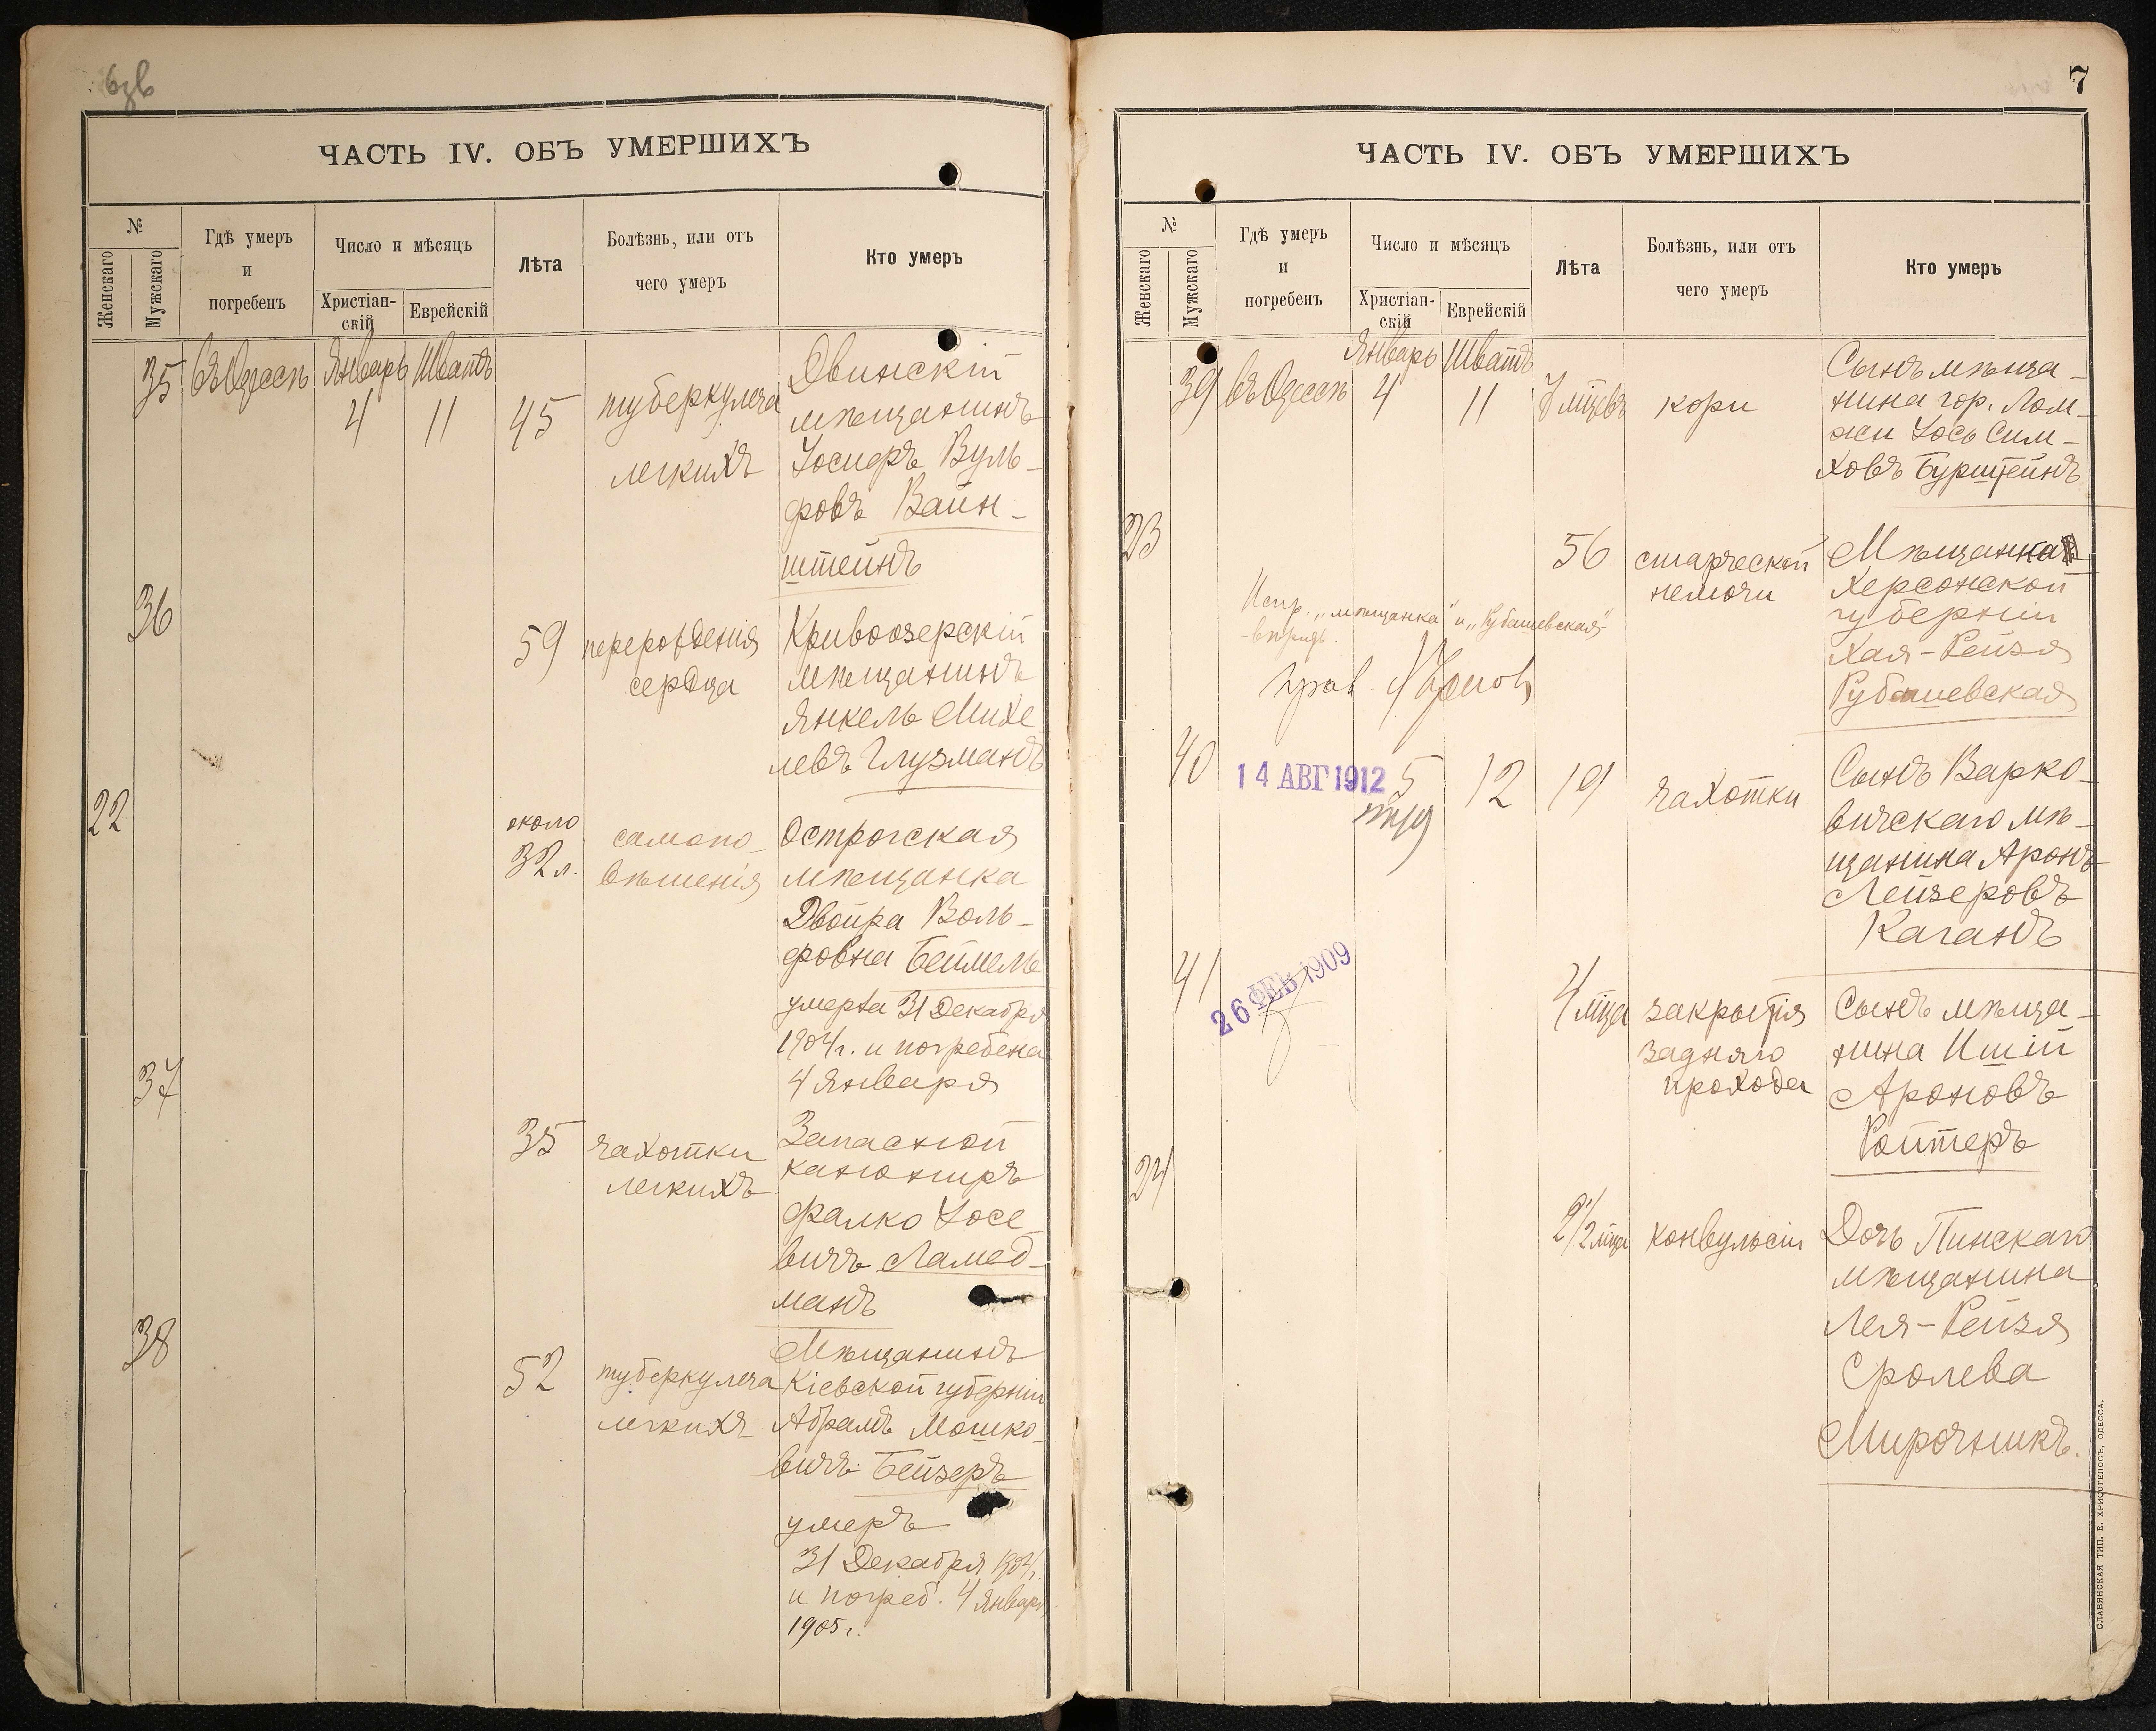 ЧАСТЬ IV. ОБЪ УМЕРШИХЪ
№
Женскаго
Мужскаго
Гдѣ умеръ
и
погребенъ
Число и мѣсяцъ
Христіан-
скій
Еврейскій
Лѣта
Болѣзнь, или отъ
чего умеръ
Кто умеръ
35 въ Одессѣ Январь Шватъ
4 11 45
туберкулеза
легкихъ
Двинскій
мѣщанинъ
Іосифъ Вуль-
фовъ Вайн-
штейнъ
36
59 перерожденія
сердца
Кривоозерскій
мѣщанинъ
Янкель Михе
левъ Глузманъ
22
около
32 л.
самопо-
вѣшенія
Острогская
мѣщанка
Двойра Воль-
фовна Беймель
умерла 31 Декабря
1904 г. и погребена
4 Января
37
35 чахотки
легкихъ
Запасной
канониръ
Фалко Іосе-
вичъ Ламед-
манъ
38
52 туберкулеза
легкихъ
Мѣщанинъ
Кіевской губерніи
Абрамъ Мошко-
вичъ Бейзеръ
умеръ
31 Декабря 1904 г.
и погреб. 4 Января
1905 г.
7
ЧАСТЬ IV. ОБЪ УМЕРШИХЪ
№
Женскаго
Мужскаго
Гдѣ умеръ
и
погребенъ
Число и мѣсяцъ
Христіан-
скій
Еврейскій
Лѣта
Болѣзнь, или отъ
чего умеръ
Кто умеръ
39 въ Одессѣ Январь Шватъ
4 11 7 мцевъ кори
Сынъ мѣща-
нина гор. Лом-
жи Іось Сим-
ховъ Бурштейнъ
23
56 старческой
немочи
Мѣщанка
Херсонской
губерніи
Хая-Рейзя
Рубашевская
Испр. „мѣщанка" и „Рубашевская"
-вѣрить.
40
14 АВГ 1912
5 12 19 чахотки
Сынъ Варко-
вичскаго мѣ-
щанина Аронъ
Лейзеровъ
Каганъ
41
26 ФЕВ 1909
4 мца закрытія
задняго
прохода
Сынъ мѣща-
нина Ишій
Ароновъ
Ройтеръ
24
2 1/2 мца конвульсіи
Дочь Пинскаго
мѣщанина
Лея-Рейзя
Сролева
Мирочникъ.
СЛАВЯНСКАЯ ТИП. Е. ХРИСОГЕЛОСЪ, ОДЕССА.